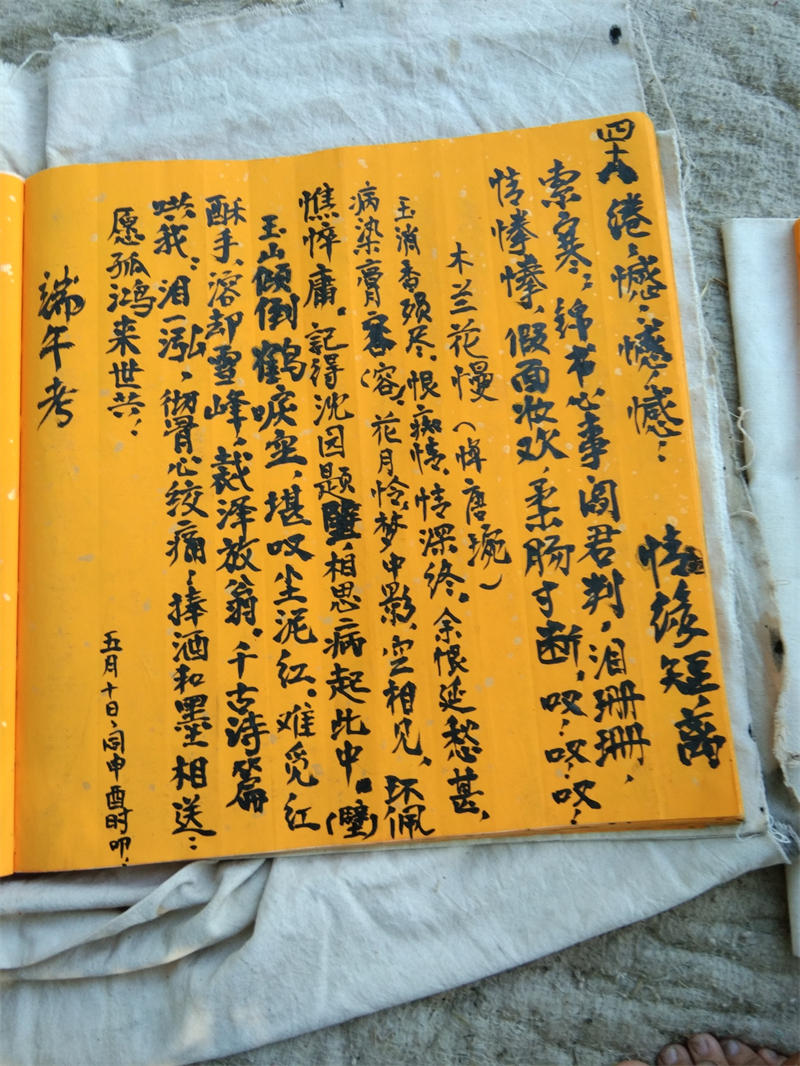 四十八
倦、憾、憾、憾、情缘短、离
索寒、锦书心事阎君判,泪珊珊,
情悽悽,假面妆欢,柔肠寸断,叹、叹、叹、
木兰花慢(悼唐琬)
玉消香殒尽、恨痴情、情深终、余恨延愁甚、
病染膏容(容)、花月怜、梦中影、空相见、环佩
憔悴庸。記得沈园题壁,相思病起此中(壁)
玉山倾倒鹤唳空,堪叹尘泥红。难觅红
酥手,溶却雪峰,裁泽放翁,千古诗篇
哄我、泪一泓,彻骨心绞痛,捧酒和墨相送、
愿孤鸿来世共、
端午考
五月十日、丙申酉时叩、